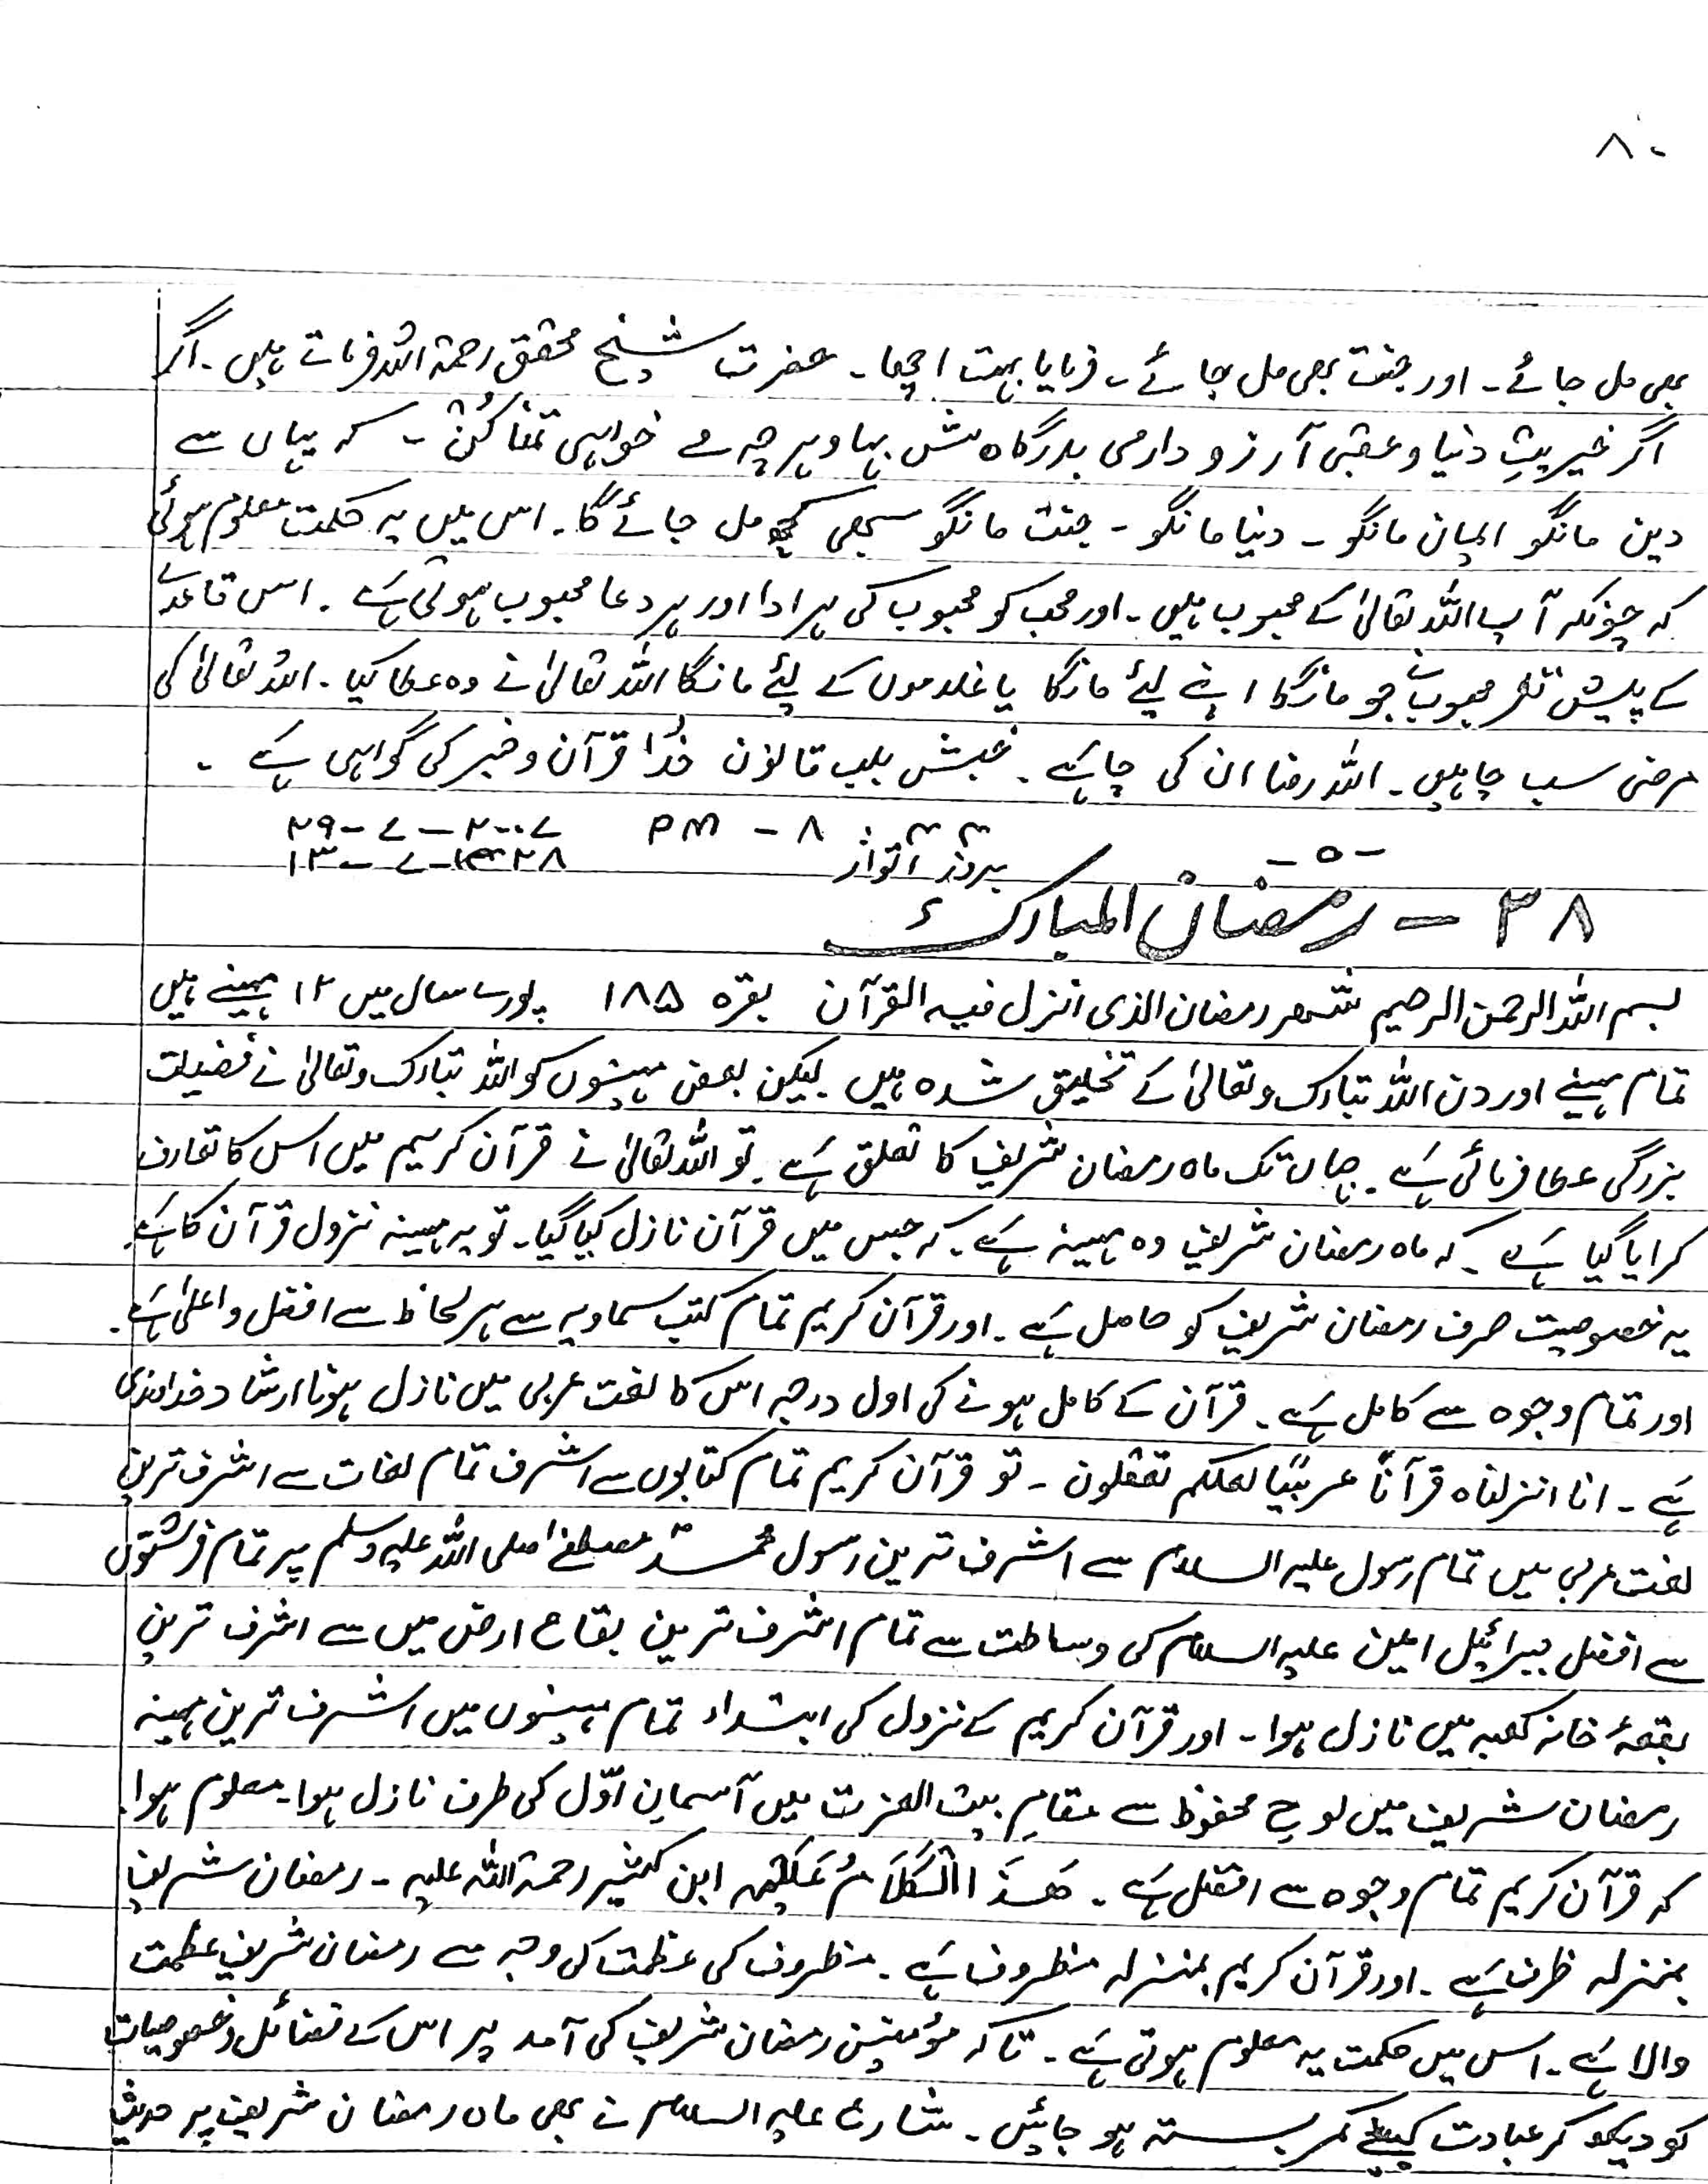 ۸۰
بھی مل جائے۔ اور جنت بھی مل جائے۔ فرمایا بہت اچھا۔ حضرت شیخ محقق رحمۃ اللہ فرماتے ہیں۔ اگر
اگر خیریتِ دنیا و عقبی آرزو داری بدرگاہش بیا و ہر چہ مے خواہی تمنا کُن۔ کہ یہاں سے
دین مانگو ایمان مانگو۔ دنیا مانگو۔ جنت مانگو سبھی کچھ مل جائے گا۔ اس میں یہ حکمت معلوم ہوئی
کہ چونکہ آپ اللہ تعالیٰ کے محبوب ہیں۔ اور محب کو محبوب کی ہر ادا اور ہر دعا محبوب ہوتی ہے۔ اس قاعدے
کے پیش نظر محبوب نے جو مانگا اپنے لیئے مانگا یا غلاموں کے لیئے مانگا اللہ تعالیٰ نے وہ عطا کیا۔ اللہ تعالیٰ کی
مرضی سب چاہیں۔ اللہ رضا ان کی چاہے۔ جنبش بلب قانون خُدا قرآن و خبر کی گواہی ہے۔
۲۹-۷-۲۰۰۷ PM - ۸
-۰- بروز اتوار ۱۳-۷-۱۴۲۸
۲۸ - رمضان المبارک
بسم اللہ الرحمن الرحیم شھر رمضان الذی انزل فیہ القرآن بقرہ ۱۸۵ پورے سال میں ۱۲ مہینے ہیں
تمام مہینے اور دن اللہ تبارک وتعالیٰ کے تخلیق شدہ ہیں لیکن بعض مہینوں کو اللہ تبارک وتعالیٰ نے فضیلت
بزرگی عطا فرمائی ہے۔ جہاں تک ماہ رمضان شریف کا تعلق ہے۔ تو اللہ تعالیٰ نے قرآن کریم میں اس کا تعارف
کرایا گیا ہے۔ کہ ماہ رمضان شریف وہ مہینہ ہے۔ کہ جس میں قرآن نازل کیا گیا۔ تو یہ مہینہ نزول قرآن کا ہے۔
یہ خصوصیت صرف رمضان شریف کو حاصل ہے۔ اور قرآن کریم تمام کتب سماویہ سے ہر لحاظ سے افضل و اعلیٰ ہے۔
اور تمام وجوہ سے کامل ہے۔ قرآن کے کامل ہونے کی اول درجہ اس کا لغت عربی میں نازل ہونا ارشاد خداوندی
ہے۔ انا انزلناہ قرآناً عربیًا لعلکم تعقلون۔ تو قرآن کریم تمام کتابوں سے اشرف تمام لغات سے اشرف ترین
لغت عربی میں تمام رسول علیہ السلام سے اشرف ترین رسول محمد مصطفےٰ صلی اللہ علیہ وسلم پر تمام فرشتوں
سے افضل جبرائیل امین علیہ السلام کی وساطت سے تمام اشرف ترین بقاع ارض میں سے اشرف ترین
بقعۂ خانہ کعبہ میں نازل ہوا۔ اور قرآن کریم کے نزول کی ابتداء تمام مہینوں میں اشرف ترین مہینہ
رمضان شریف میں لوحِ محفوظ سے مقامِ بیت العزت میں آسمانِ اوّل کی طرف نازل ہوا۔ معلوم ہوا۔
کہ قرآن کریم تمام وجوہ سے افضل ہے۔ ابن کثیر رحمۃ اللہ علیہ۔ رمضان شریف
بمنزلہ ظرف ہے۔ اور قرآن کریم بمنزلہ مظروف ہے۔ مظروف کی عظمت کی وجہ سے رمضان شریف عظمت
والا ہے۔ اس میں حکمت یہ معلوم ہوتی ہے۔ تاکہ مؤمنین رمضان شریف کی آمد پر اس کے فضائل و خصوصیات
کو دیکھ کر عبادت کیلئے کمر بستہ ہو جائیں۔ شارع علیہ السلام نے بھی ماہ رمضان شریف پر حدیث